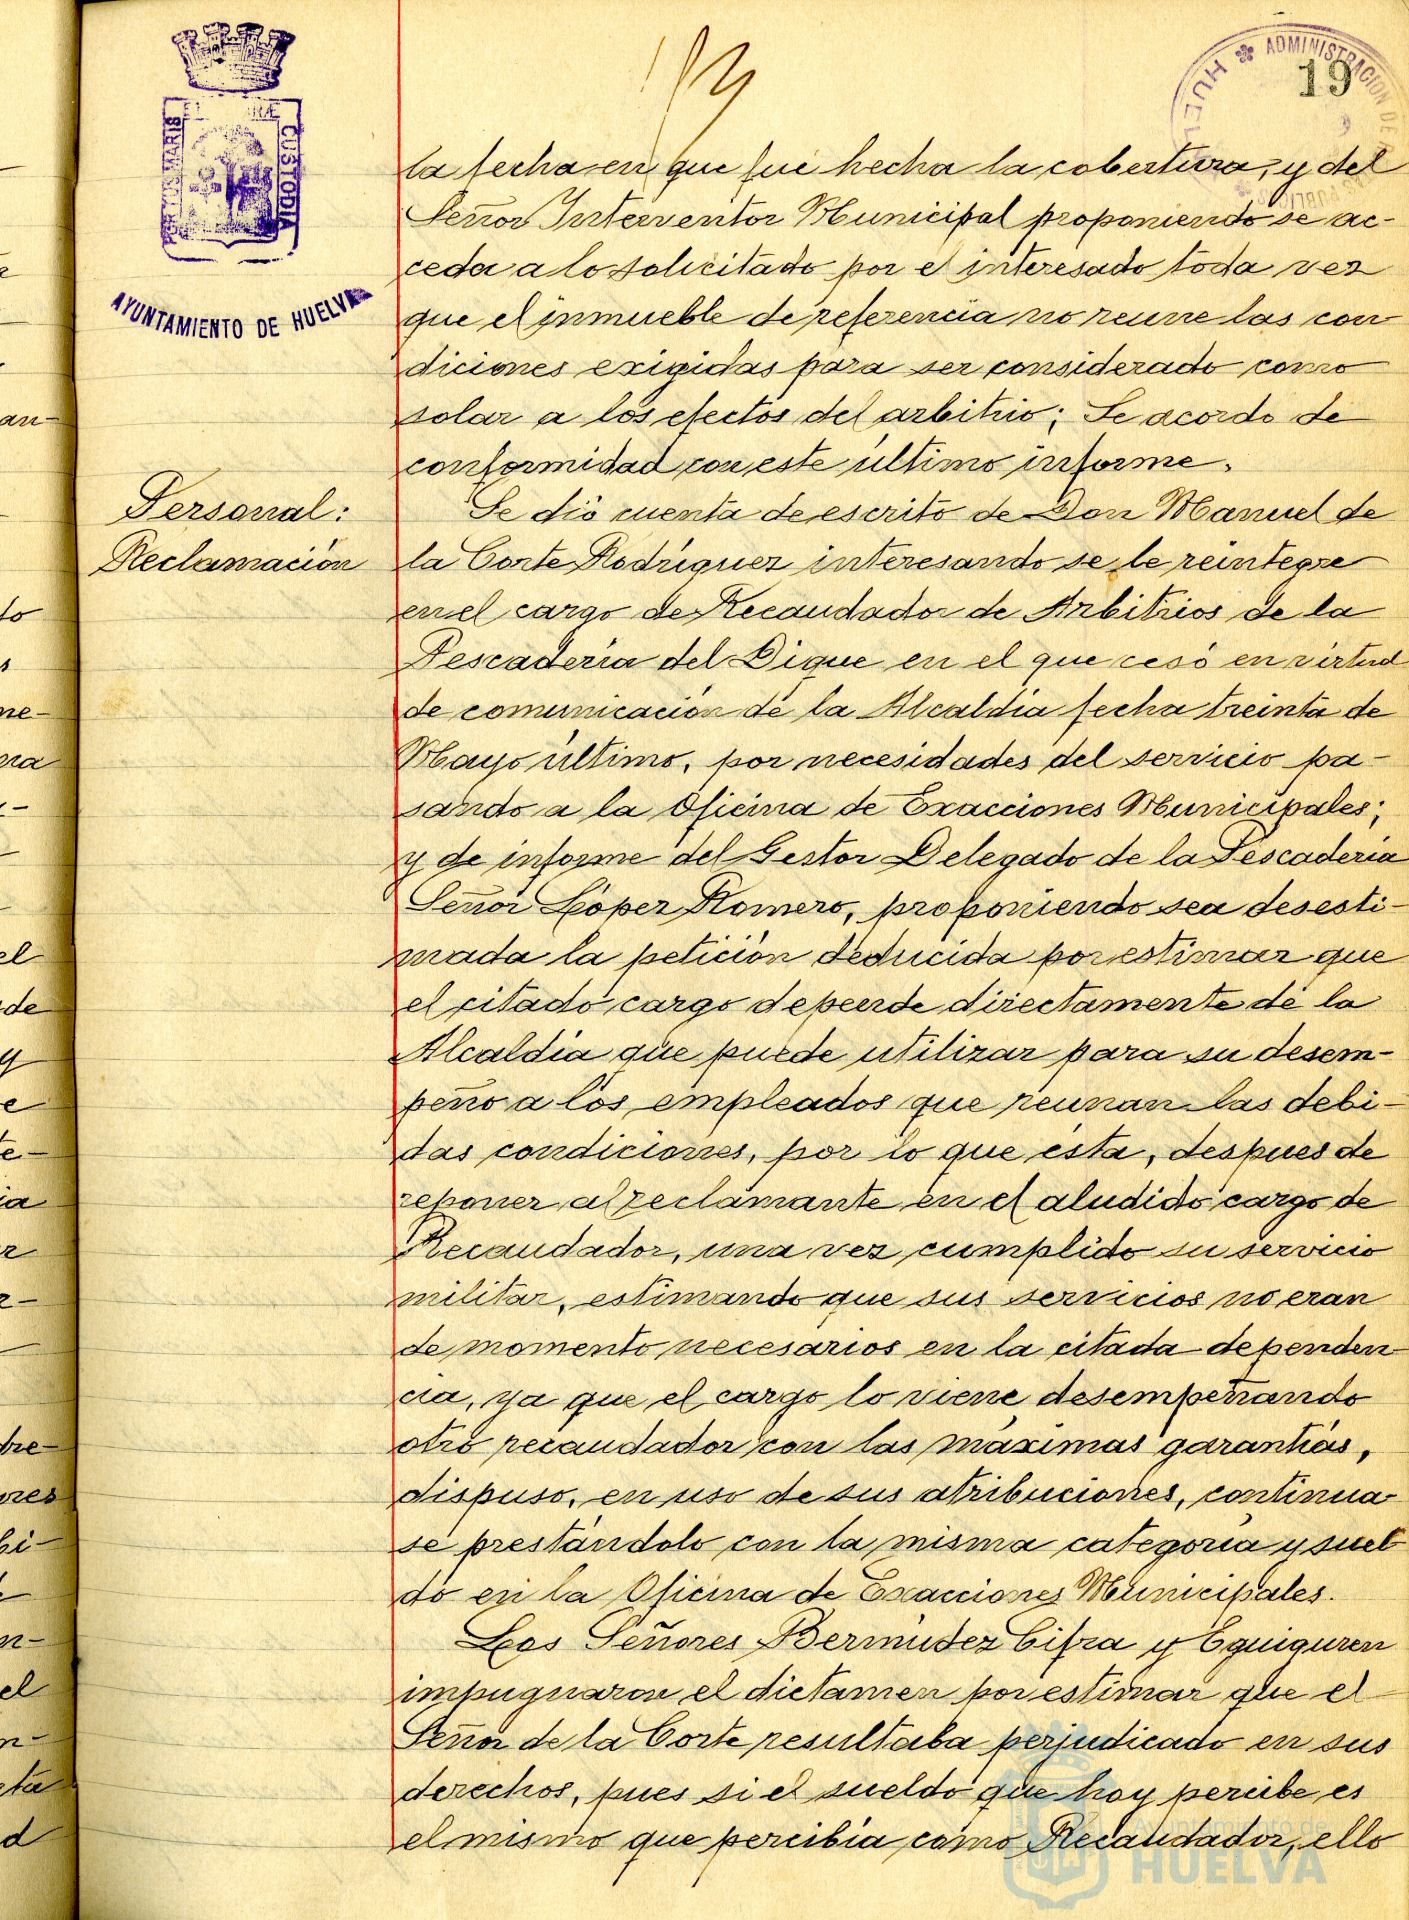 19
ADMINISTRACION DE
HUELVA
PORTUS MARIS
CUSTODIA
AYUNTAMIENTO DE HUELVA
la fecha en que fué hecha la cobertura, y del
Señor Interventor Municipal proponiendo se ac-
ceda a lo solicitado por el interesado toda vez
que el inmueble de referencia no reune las con
diciones exigidas para ser considerado como
solar a los efectos del arbitrio; Se acordo de
conformidad con este último informe.
Personal:
Reclamación
Se dió cuenta de escrito de Don Manuel de
la Corte Rodríguez interesando se le reintegre
en el cargo de Recaudador de Arbitrios de la
Pescadería del Dique en el que cesó en virtud
de comunicación de la Alcaldía fecha treinta de
Mayo último, por necesidades del servicio pa-
sando a la Oficina de Exacciones Municipales;
y de informe del Gestor Delegado de la Pescadería
Señor López Romero, proponiendo sea desesti-
mada la petición deducida por estimar que
el citado cargo depende directamente de la
Alcaldía que puede utilizar para su desem-
peño a los empleados que reunan las debi-
das condiciones, por lo que ésta, despues de
reponer al reclamante en el aludido cargo de
Recaudador, una vez cumplido su servicio
militar, estimando que sus servicios no eran
de momento necesarios en la citada dependen
cia, ya que el cargo lo viene desempeñando
otro recaudador con las máximas garantías,
dispuso, en uso de sus atribuciones, continua-
se prestándolo con la misma categoría y suel
do en la Oficina de Exacciones Municipales.
Los Señores Bermúdez Cifra y Eguiguren
impugnaron el dictamen por estimar que el
Señor de la Corte resultaba perjudicado en sus
derechos, pues si el sueldo que hoy percibe es
el mismo que percibía como Recaudador, ello
Ayuntamiento de
HUELVA